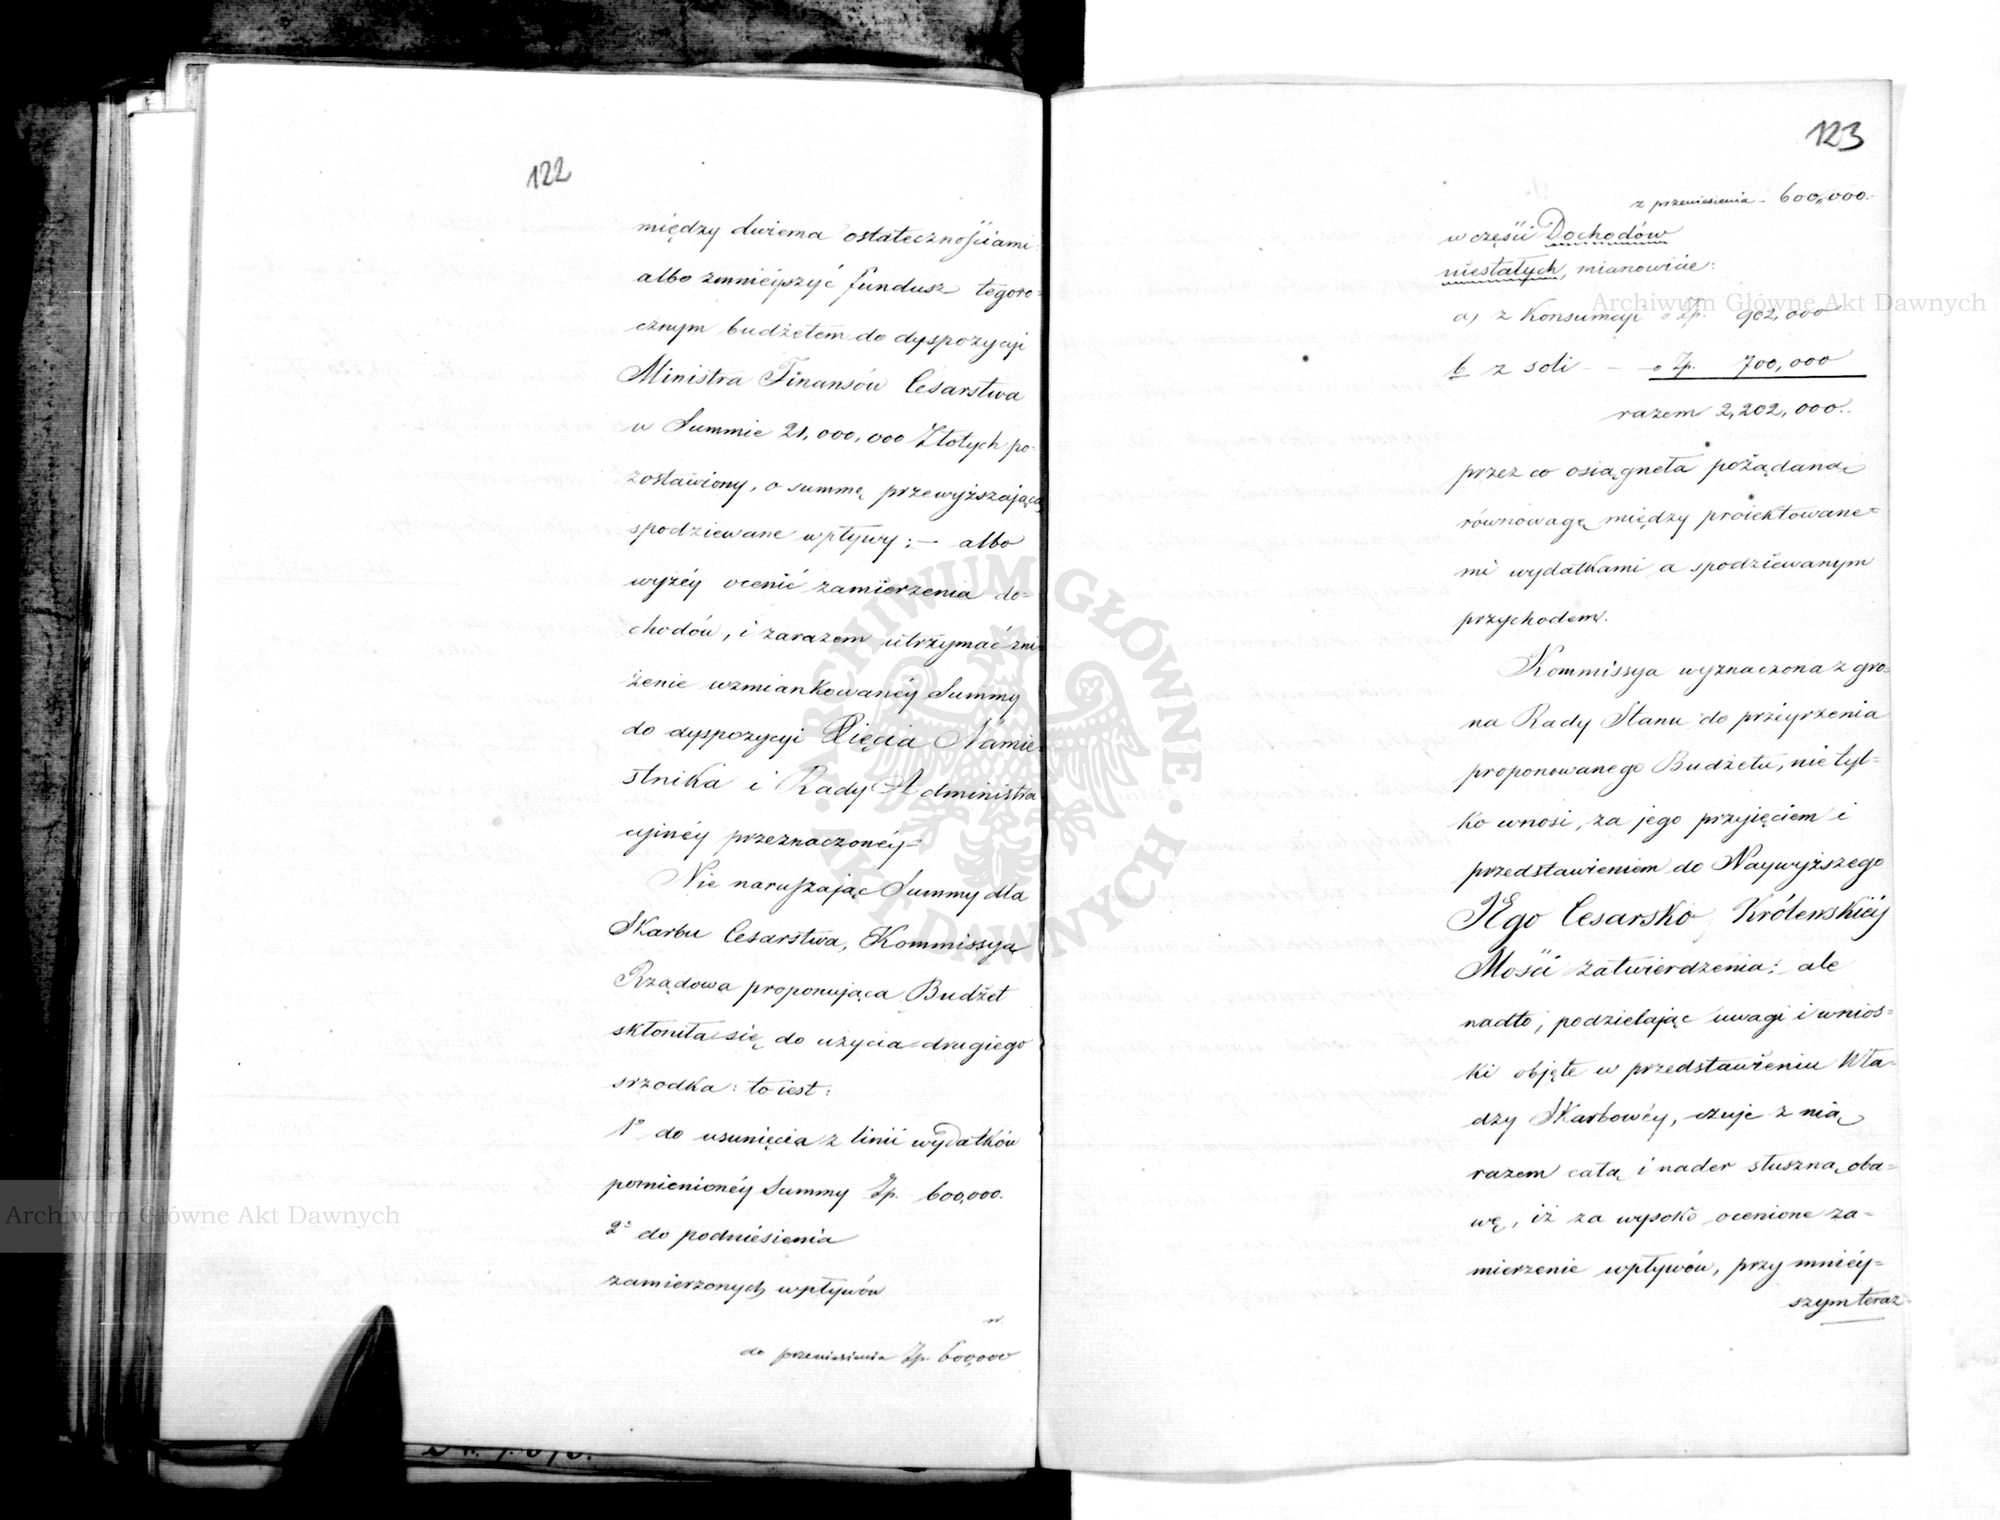 122
między dwiema ostatecznościami:
albo zmniéjszyć fundusz tegoro-
cznym budżetem do dyspozycji
Ministra Finansów Cesarstwa
w Summie 21,000,000 Złotych po-
zostawiony, o summę przewyższającą
spodziewane wpływy; — albo
wyżéy ocenić zamierzenia do-
chodów, i zarazem utrzymać zni-
żenie wzmiankowanéy Summy
do dyspozycyi Xięcia Namie-
stnika i Rady Administra-
cyjnéy przeznaczonéy
Nie naruszając Summy dla
Skarbu Cesarstwa, Kommissya
Rządowa proponująca Budżet
skłoniła się do użycia drugiego
srzodka: to iest:
1° do usunięcia z linii wydatków
pomienionéy Summy Zp. 600,000.
2° do podniésienia
zamierzonych wpływów
w.
do przeniesienia Zp. 600,000
123
z przeniesienia - 600,000.
w części Dochodów
niestałych, mianowicie:
a) z Konsumcyi o Zp. 902,000
b z soli - - o Zp. 700,000
razem 2,202,000.
przez co osiągneła pożądaną
równowagę między proiektowane-
mi wydatkami a spodziéwanym
przychodem.
Kommissya wyznaczona z gro-
na Rady Stanu do przéyrzenia
proponowanego Budżetu, nie tyl-
ko wnosi, za jego przyjęciem i
przedstawieniem do Naywyższego
JEgo Cesarsko Królewskiéy
Mości zatwierdzenia; ale
nadto, podzielając uwagi i wnios-
ki objęte w przedstawieniu Wła-
dzy Skarbowéy, czuje z nią
razem całą i nader słuszną oba-
wę, iż za wysoko ocenione za-
mierzenie wpływów, przy mniéy-
szym teraz
Archiwum Główne Akt Dawnych
Archiwum Główne Akt Dawnych
ARCHIWUM GŁÓWNE
AKT DAWNYCH